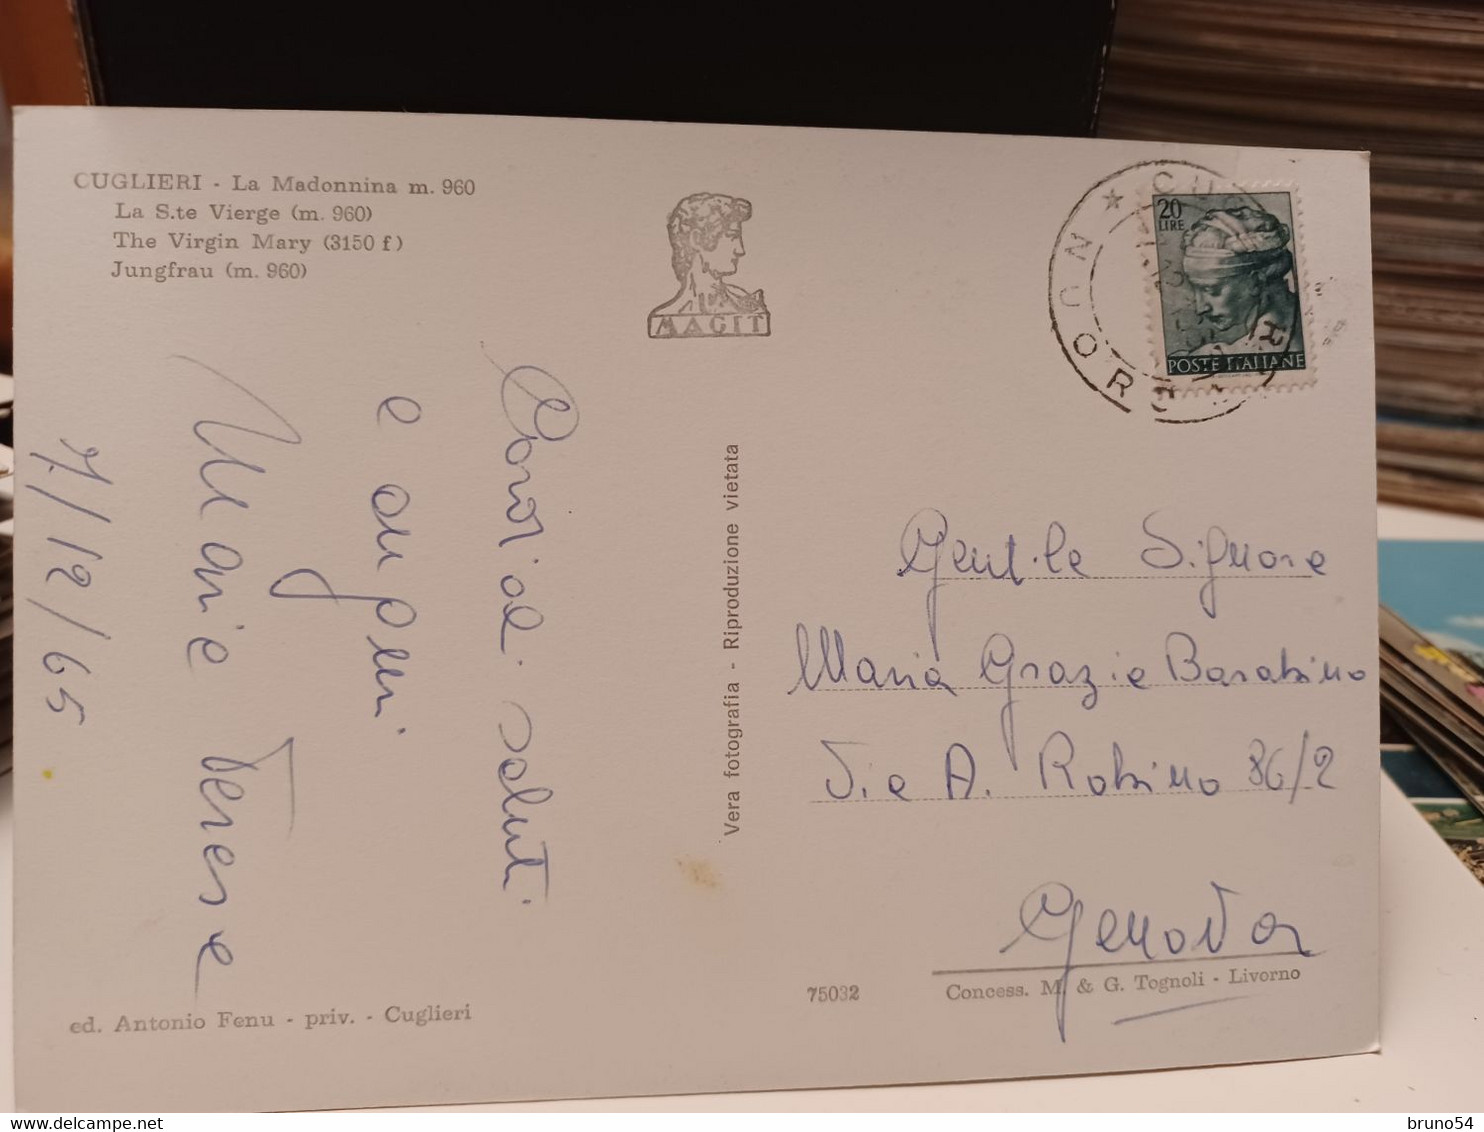 CUGLIERI - La Madonnina m. 960
La S.te Vierge (m. 960)
The Virgin Mary (3150 f)
Jungfrau (m. 960)
MAGIT
20
LIRE
POSTE ITALIANE
NUORO
Cordiali saluti
e auguri
Maria Teresa
7/12/65
Vera fotografia - Riproduzione vietata
Gentile Signora
Maria Grazia Barabino
Via A. Robino 86/2
Genova
75032
Concess. M. & G. Tognoli - Livorno
ed. Antonio Fenu - priv. - Cuglieri
bruno54